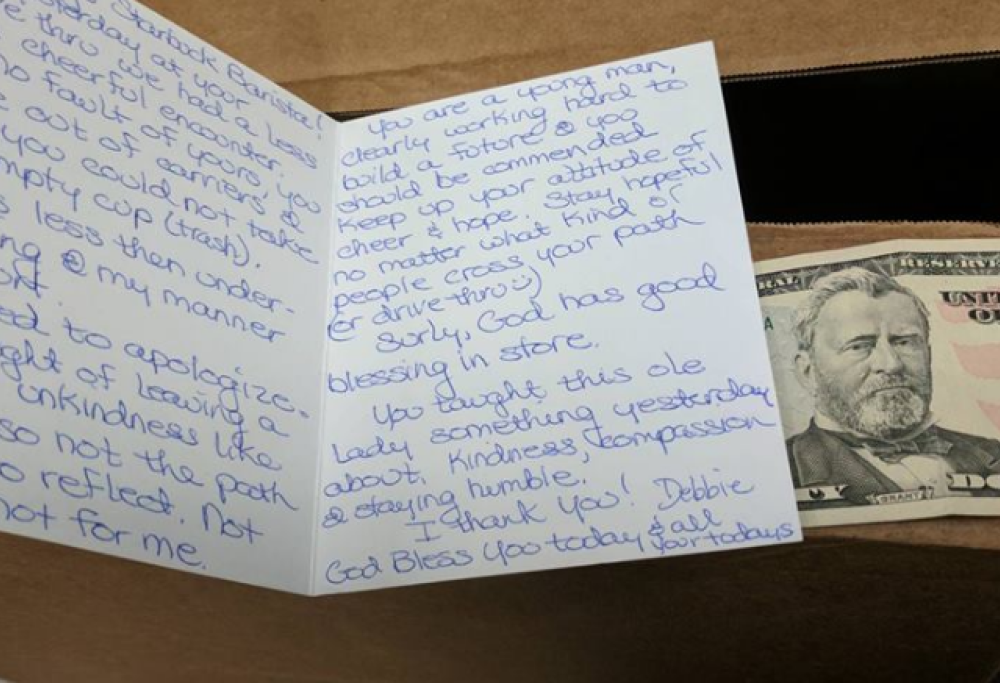 Starbuck Barista!
terday at your
e thru we had a less
cheerful encounter.
no fault of yours, you
e out of carriers &
you could not take
mpty cup (trash).
s less then under-
ing & my manner
ed to apologize.
ght of leaving a
unkindness like
so not the path
o reflect. Not
not for me.
You are a young man,
clearly working hard to
build a future & you
should be commended
Keep up your attitude of
cheer & hope. Stay hopeful
no matter what kind of
people cross your path
(or drive thru)
Surly, God has good
blessing in store.
You taught this ole
Lady something yesterday
about. Kindness, compassion
& staying humble.
I thank you! Debbie
God Bless you today & all
your todays
RAL RESERVE
UNIT
OF
GRANT
DO